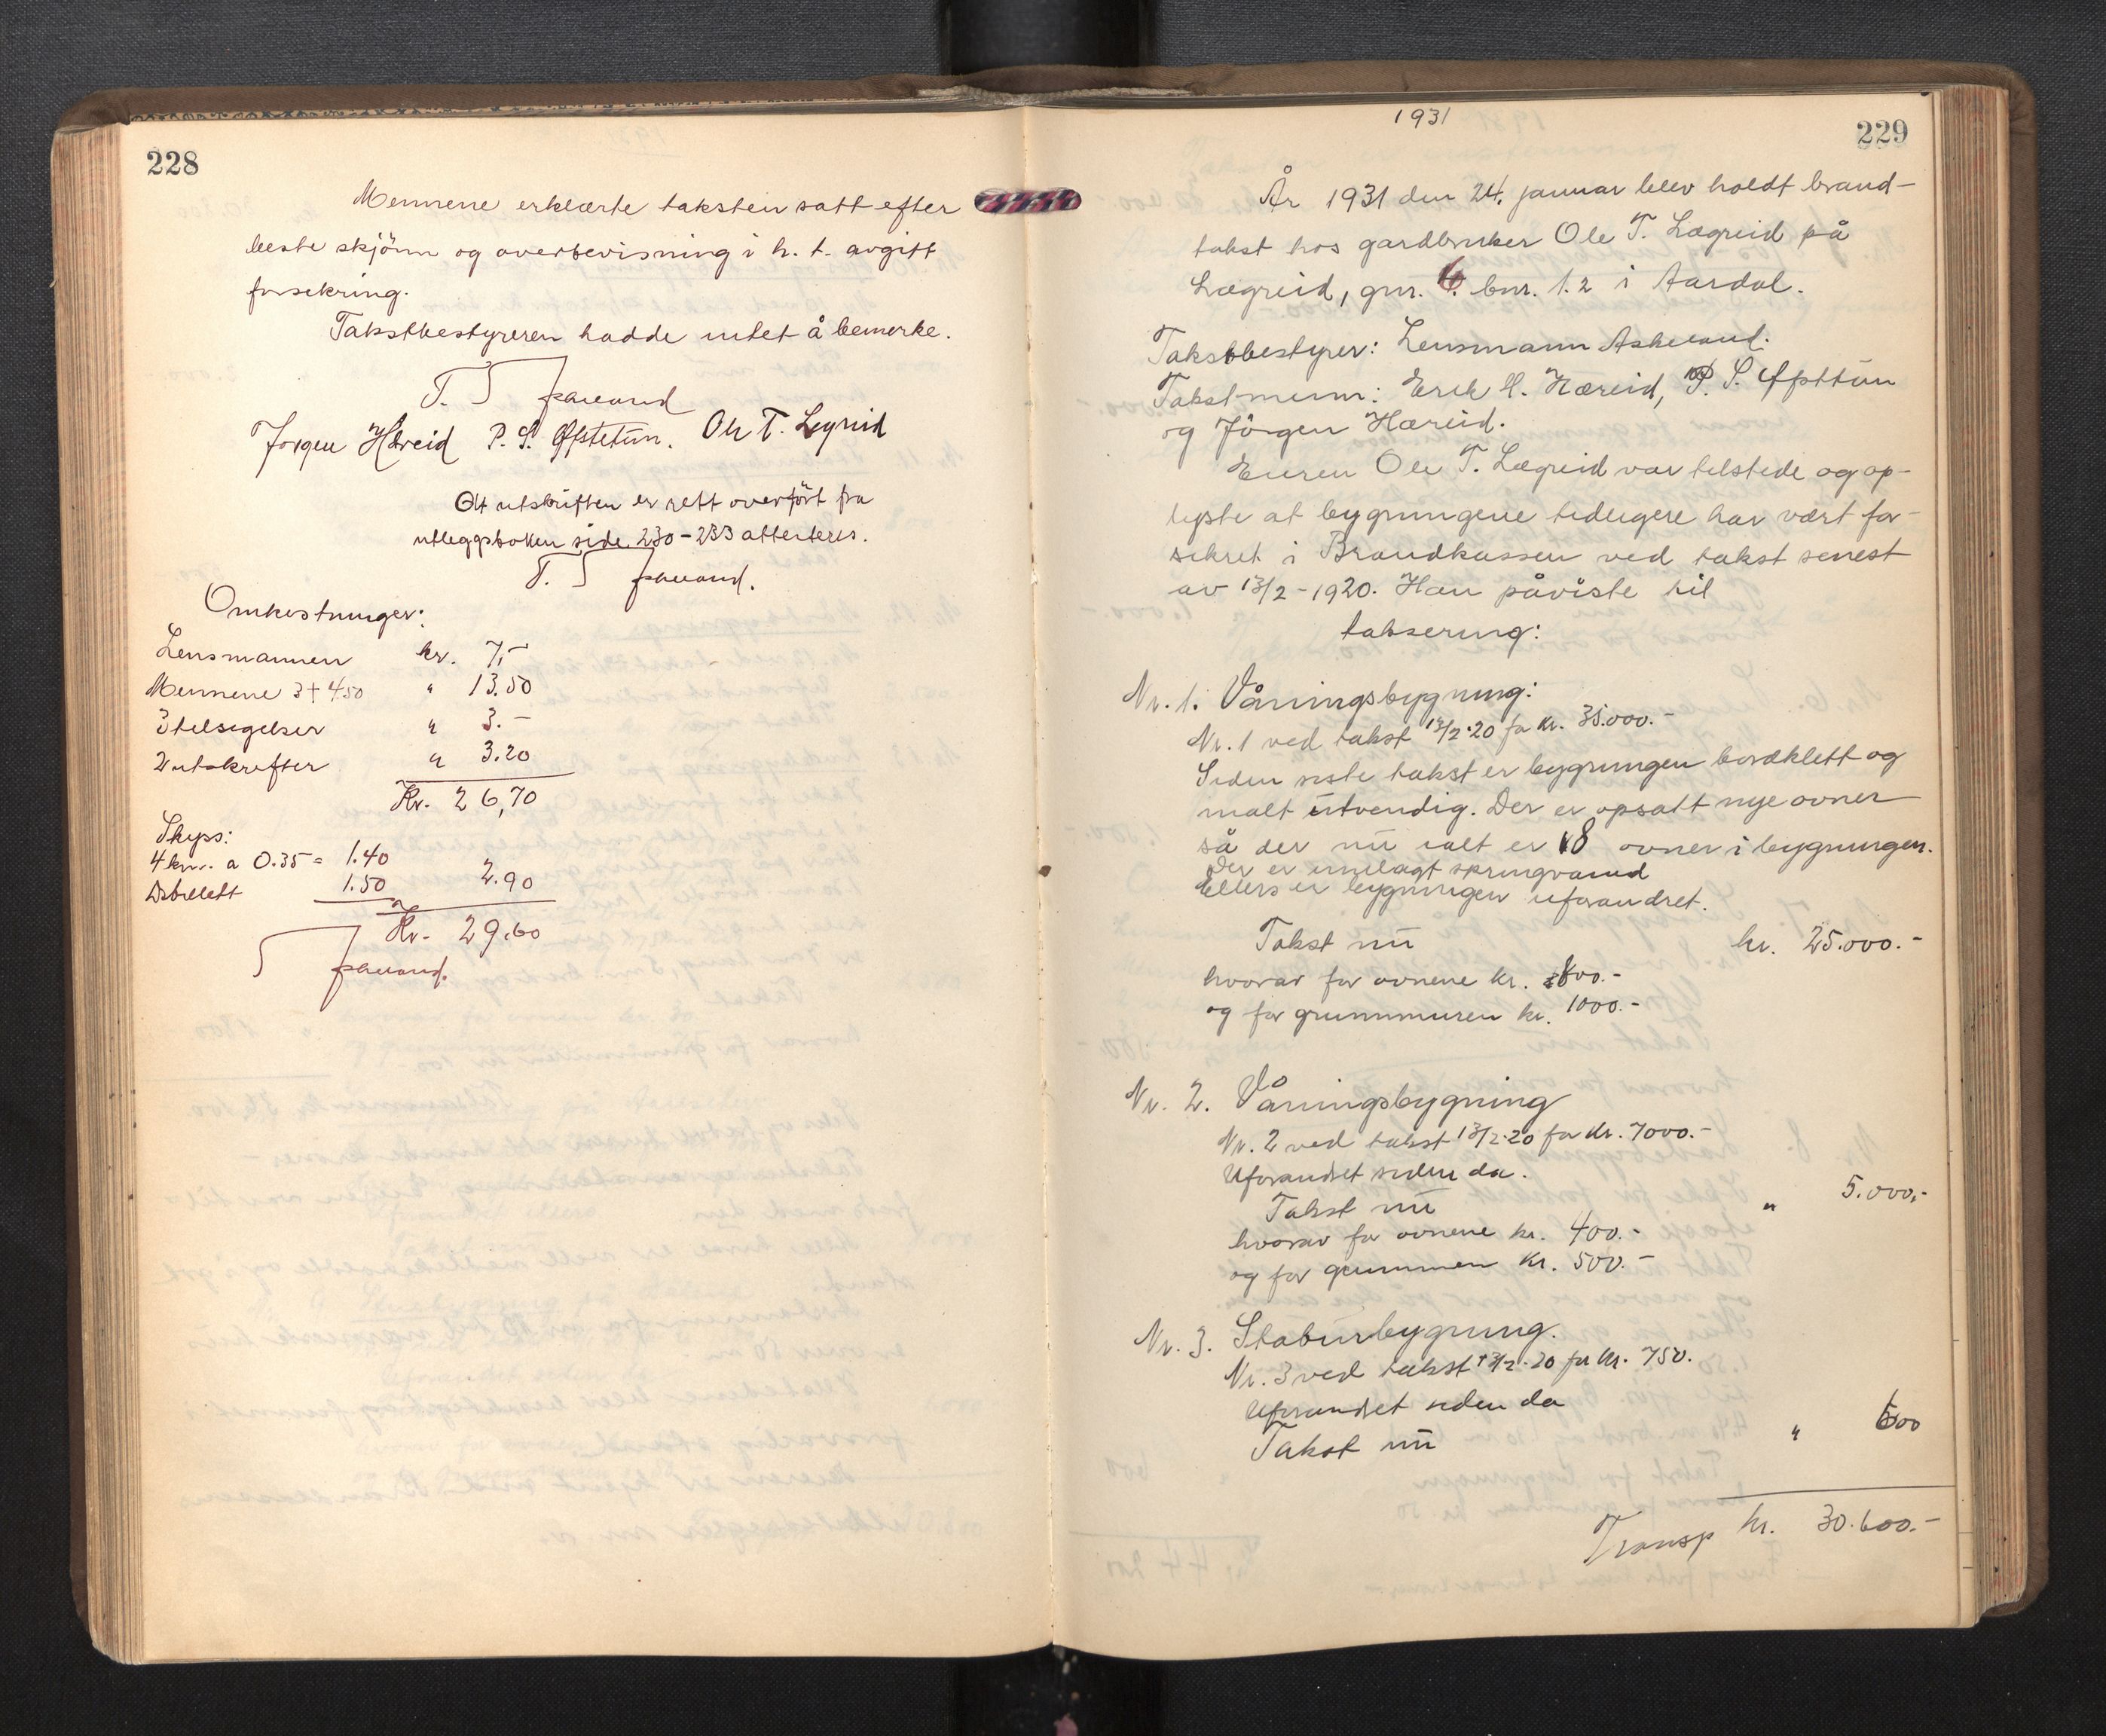 228
Mennene erklærte taksten satt efter
beste skjönn og overbevisning i h. t. avgitt
forsikring.
Takstbestyreren hadde intet å bemerke.
T.
Jørgen Hæreid P. S. Ofstetun. Ole T. Legreid
At utskriften er rett overfört fra
utleggsboken side 230-233 attesteres.
T.
Omkostninger:
Lensmannen kr. 7,-
Mennene 3+4.50 " 13.50
3 tilsigelser " 3.-
2 utskrifter " 3.20
Kr. 26,70
Skyss:
4 km. a 0.35 = 1.40
1.50 2.90
Kr. 29.60
1931
229
År 1931 den 24. januar blev holdt brand-
takst hos gardbruker Ole T. Lægreid på
Lægreid, gnr. 6. bnr. 1.2 i Aardal.
Takstbestyrer: Lensmann Askeland.
Takstmenn: Erik H. Hæreid, P. S. Ofsttun
og Jörgen Hæreid.
Eieren Ole T. Lægreid var tilstede og op-
lyste at bygningene tidligere har vært for-
sikret i Brandkassen ved takst senest
av 13/2-1920. Han påviste til
taksering:
Nr. 1. Våningsbygning:
Nr. 1 ved takst 13/2.20 for kr. 35.000.-
Siden siste takst er bygningen bordklett og
malt utvendig. Der er opsatt nye ovner
så der nu ialt er 8 ovner i bygningen.
Der er innlagt springvand
Ellers er bygningen uforandret.
Takst nu kr. 25.000.-
hvorav for ovnene kr. 800.-
og for grunnmuren kr. 1000.-
Nr. 2. Våningsbygning
Nr. 2 ved takst 13/2.20 for kr. 7000.-
Uforandret siden da.
Takst nu " 5.000.-
hvorav for ovnene kr. 400.-
og for grunnmuren kr. 500.-
Nr. 3. Stabursbygning.
Nr. 3 ved takst 13/2.20 for kr. 750.
Uforandret siden da
Takst nu " 600
Transp kr. 30.600.-